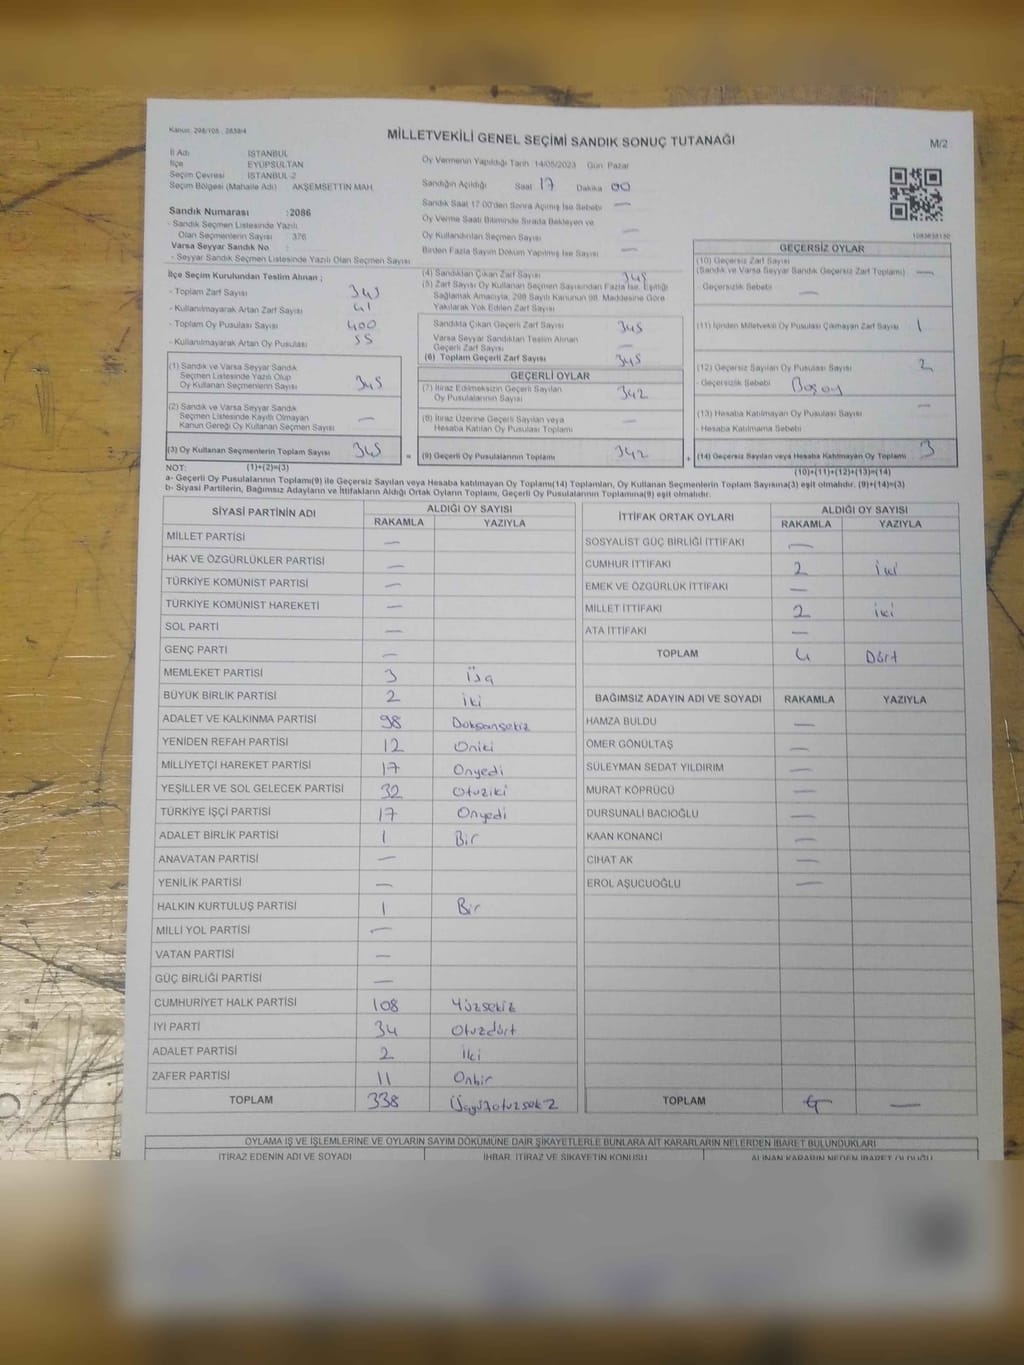 Kanun: 298/105 , 2839/4
MİLLETVEKİLİ GENEL SEÇİMİ SANDIK SONUÇ TUTANAĞI
M/2
İl Adı : İSTANBUL
İlçe : EYÜPSULTAN
Seçim Çevresi : İSTANBUL-2
Seçim Bölgesi (Mahalle Adı) : AKŞEMSETTİN MAH.
Sandık Numarası :2086
- Sandık Seçmen Listesinde Yazılı
Olan Seçmenlerin Sayısı : 376
Varsa Seyyar Sandık No :
- Seyyar Sandık Seçmen Listesinde Yazılı Olan Seçmen Sayısı
Oy Vermenin Yapıldığı Tarih 14/05/2023 Gün: Pazar
Sandığın Açıldığı Saat 17 Dakika 00
Sandık Saat 17.00'den Sonra Açılmış İse Sebebi —
Oy Verme Saati Bitiminde Sırada Bekleyen ve
Oy Kullandırılan Seçmen Sayısı —
Birden Fazla Sayım Döküm Yapılmış İse Sayısı —
1083638150
İlçe Seçim Kurulundan Teslim Alınan ;
- Toplam Zarf Sayısı
- Kullanılmayarak Artan Zarf Sayısı 41
- Toplam Oy Pusulası Sayısı 400
- Kullanılmayarak Artan Oy Pusulası 55
(1) Sandık ve Varsa Seyyar Sandık
Seçmen Listesinde Yazılı Olup
Oy Kullanan Seçmenlerin Sayısı 345
(2) Sandık ve Varsa Seyyar Sandık
Seçmen Listesinde Kayıtlı Olmayan
Kanun Gereği Oy Kullanan Seçmen Sayısı —
(3) Oy Kullanan Seçmenlerin Toplam Sayısı 345
(4) Sandıktan Çıkan Zarf Sayısı 345
(5) Zarf Sayısı Oy Kullanan Seçmen Sayısından Fazla İse, Eşitliği
Sağlamak Amacıyla, 298 Sayılı Kanunun 98. Maddesine Göre
Yakılarak Yok Edilen Zarf Sayısı
Sandıkta Çıkan Geçerli Zarf Sayısı 345
Varsa Seyyar Sandıktan Teslim Alınan
Geçerli Zarf Sayısı —
(6) Toplam Geçerli Zarf Sayısı 345
GEÇERLİ OYLAR
(7) İtiraz Edilmeksizin Geçerli Sayılan
Oy Pusulalarının Sayısı 342
(8) İtiraz Üzerine Geçerli Sayılan veya
Hesaba Katılan Oy Pusulası Toplamı —
= (9) Geçerli Oy Pusulalarının Toplamı 342
GEÇERSİZ OYLAR
(10) Geçersiz Zarf Sayısı
(Sandık ve Varsa Seyyar Sandık Geçersiz Zarf Toplamı) —
- Geçersizlik Sebebi —
(11) İçinden Milletvekili Oy Pusulası Çıkmayan Zarf Sayısı 1
(12) Geçersiz Sayılan Oy Pusulası Sayısı 2
- Geçersizlik Sebebi Boş oy
(13) Hesaba Katılmayan Oy Pusulası Sayısı —
- Hesaba Katılmama Sebebi
+ (14) Geçersiz Sayılan veya Hesaba Katılmayan Oy Toplamı 3
NOT: (1)+(2)=(3)
(10)+(11)+(12)+(13)=(14)
a- Geçerli Oy Pusulalarının Toplamı(9) ile Geçersiz Sayılan veya Hesaba katılmayan Oy Toplamı(14) Toplamları, Oy Kullanan Seçmenlerin Toplam Sayısına(3) eşit olmalıdır. (9)+(14)=(3)
b- Siyasi Partilerin, Bağımsız Adayların ve İttifakların Aldığı Ortak Oyların Toplamı, Geçerli Oy Pusulalarının Toplamına(9) eşit olmalıdır.
SİYASİ PARTİNİN ADI ALDIĞI OY SAYISI
RAKAMLA YAZIYLA
MİLLET PARTİSİ —
HAK VE ÖZGÜRLÜKLER PARTİSİ —
TÜRKİYE KOMÜNİST PARTİSİ —
TÜRKİYE KOMÜNİST HAREKETİ —
SOL PARTİ —
GENÇ PARTİ —
MEMLEKET PARTİSİ 3 Üç
BÜYÜK BİRLİK PARTİSİ 2 İki
ADALET VE KALKINMA PARTİSİ 98 Doksansekiz
YENİDEN REFAH PARTİSİ 12 Oniki
MİLLİYETÇİ HAREKET PARTİSİ 17 Onyedi
YEŞİLLER VE SOL GELECEK PARTİSİ 32 Otuziki
TÜRKİYE İŞÇİ PARTİSİ 17 Onyedi
ADALET BİRLİK PARTİSİ 1 Bir
ANAVATAN PARTİSİ —
YENİLİK PARTİSİ —
HALKIN KURTULUŞ PARTİSİ 1 Bir
MİLLİ YOL PARTİSİ —
VATAN PARTİSİ —
GÜÇ BİRLİĞİ PARTİSİ —
CUMHURİYET HALK PARTİSİ 108 Yüzsekiz
İYİ PARTİ 34 Otuzdört
ADALET PARTİSİ 2 İki
ZAFER PARTİSİ 11 Onbir
TOPLAM 338 Üçyüzotuzsekiz
İTTİFAK ORTAK OYLARI ALDIĞI OY SAYISI
RAKAMLA YAZIYLA
SOSYALİST GÜÇ BİRLİĞİ İTTİFAKI —
CUMHUR İTTİFAKI 2 İki
EMEK VE ÖZGÜRLÜK İTTİFAKI —
MİLLET İTTİFAKI 2 İki
ATA İTTİFAKI —
TOPLAM 4 Dört
BAĞIMSIZ ADAYIN ADI VE SOYADI RAKAMLA YAZIYLA
HAMZA BULDU —
ÖMER GÖNÜLTAŞ —
SÜLEYMAN SEDAT YILDIRIM —
MURAT KÖPRÜCÜ —
DURSUNALİ BACIOĞLU —
KAAN KONANCI —
CİHAT AK —
EROL AŞUCUOĞLU —
TOPLAM —
OYLAMA İŞ VE İŞLEMLERİNE VE OYLARIN SAYIM DÖKÜMÜNE DAİR ŞİKAYETLERLE BUNLARA AİT KARARLARIN NELERDEN İBARET BULUNDUKLARI
İTİRAZ EDENİN ADI VE SOYADI İHBAR, İTİRAZ VE ŞİKAYETİN KONUSU ALINAN KARARIN NEDEN İBARET OLDUĞU